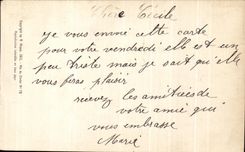 Chère Cécile
je vous envoi cette carte
pour votre vendredi elle est un
peu triste mais je sait qu'elle
vous feras plaisir
recevez les amitiées de
votre amie qui
vous embrasse
Marie